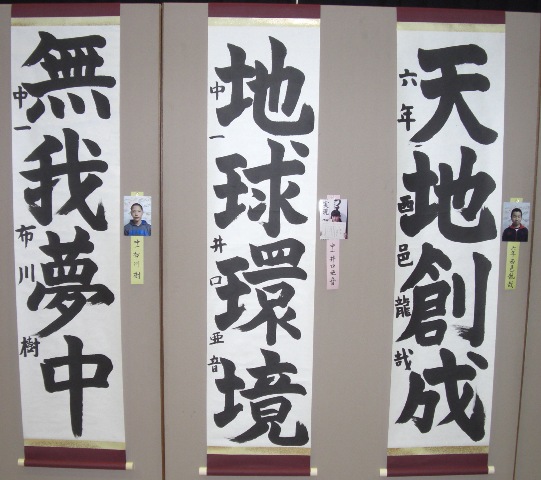 天地創成
六年 西邑龍哉
地球環境
中一 井口亜音
中一 井口亜音
無我夢中
中一 布川樹